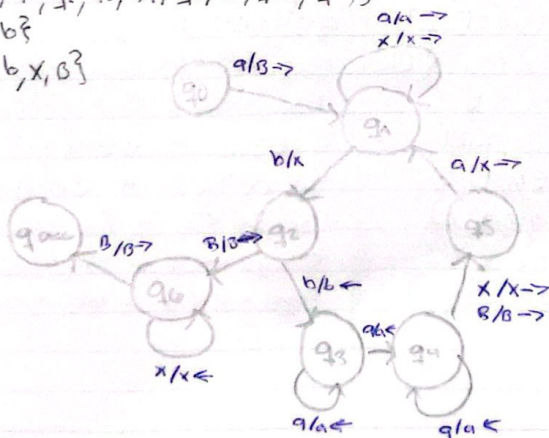 b}
b, x, B}
a/a →
x/x →
a/B →
q0
q1
b/x
a/x →
qacc
B/B →
B/B →
q2
q5
q6
b/b ←
x/x →
B/B →
q3
q4
x/x ←
a/a ←
a/a ←